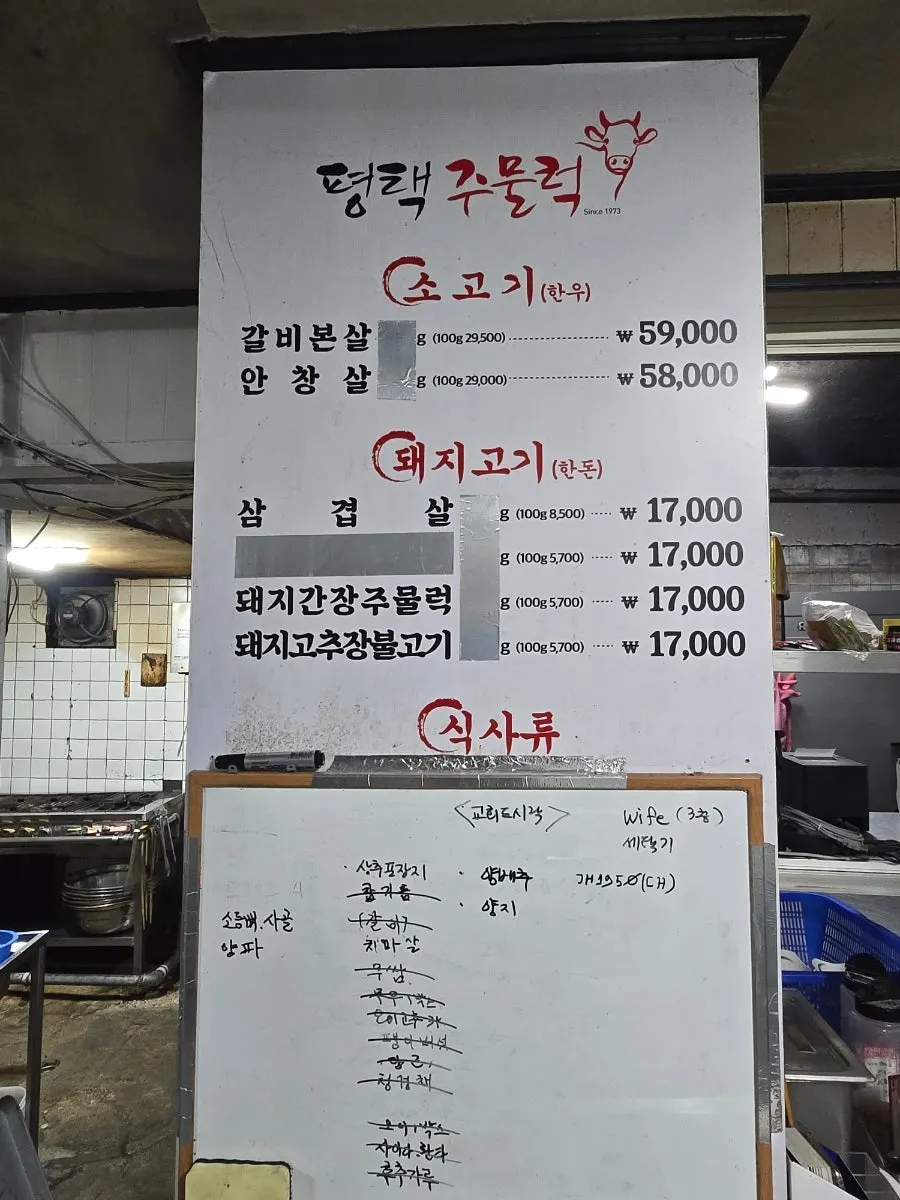 평택 주물럭
Since 1973
소고기 (한우)
갈비본살 g (100g 29,500) ₩ 59,000
안창살 g (100g 29,000) ₩ 58,000
돼지고기 (한돈)
삼겹살 g (100g 8,500) ₩ 17,000
g (100g 5,700) ₩ 17,000
돼지간장주물럭 g (100g 5,700) ₩ 17,000
돼지고추장불고기 g (100g 5,700) ₩ 17,000
식사류
Wife (3층)
세탁기
· 상추포장지
콩기름
(갈비)
치마살
무쌈
오이고추
팽이버섯
당근
청경채
오이 1박스
사이다.환타
후추가루
· 양배추
· 양지
소등뼈.사골
양파